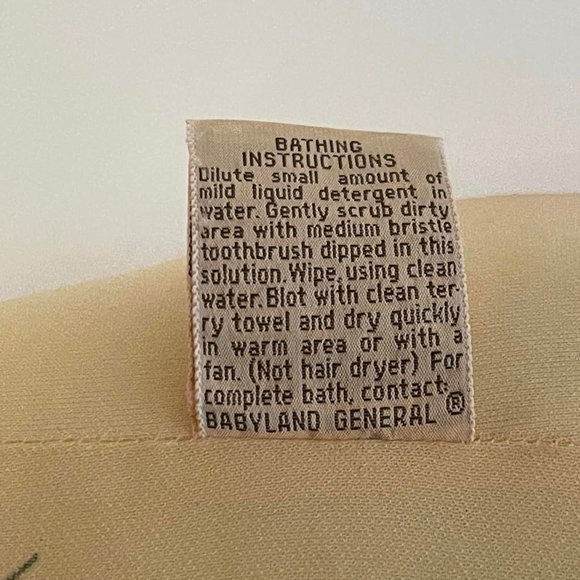 BATHING
INSTRUCTIONS
Dilute small amount of
mild liquid detergent in
water. Gently scrub dirty
area with medium bristle
toothbrush dipped in this
solution. Wipe using clean
water. Blot with clean ter-
ry towel and dry quickly
in warm area or with a
fan. (Not hair dryer) For
complete bath, contact:
BABYLAND GENERAL ®